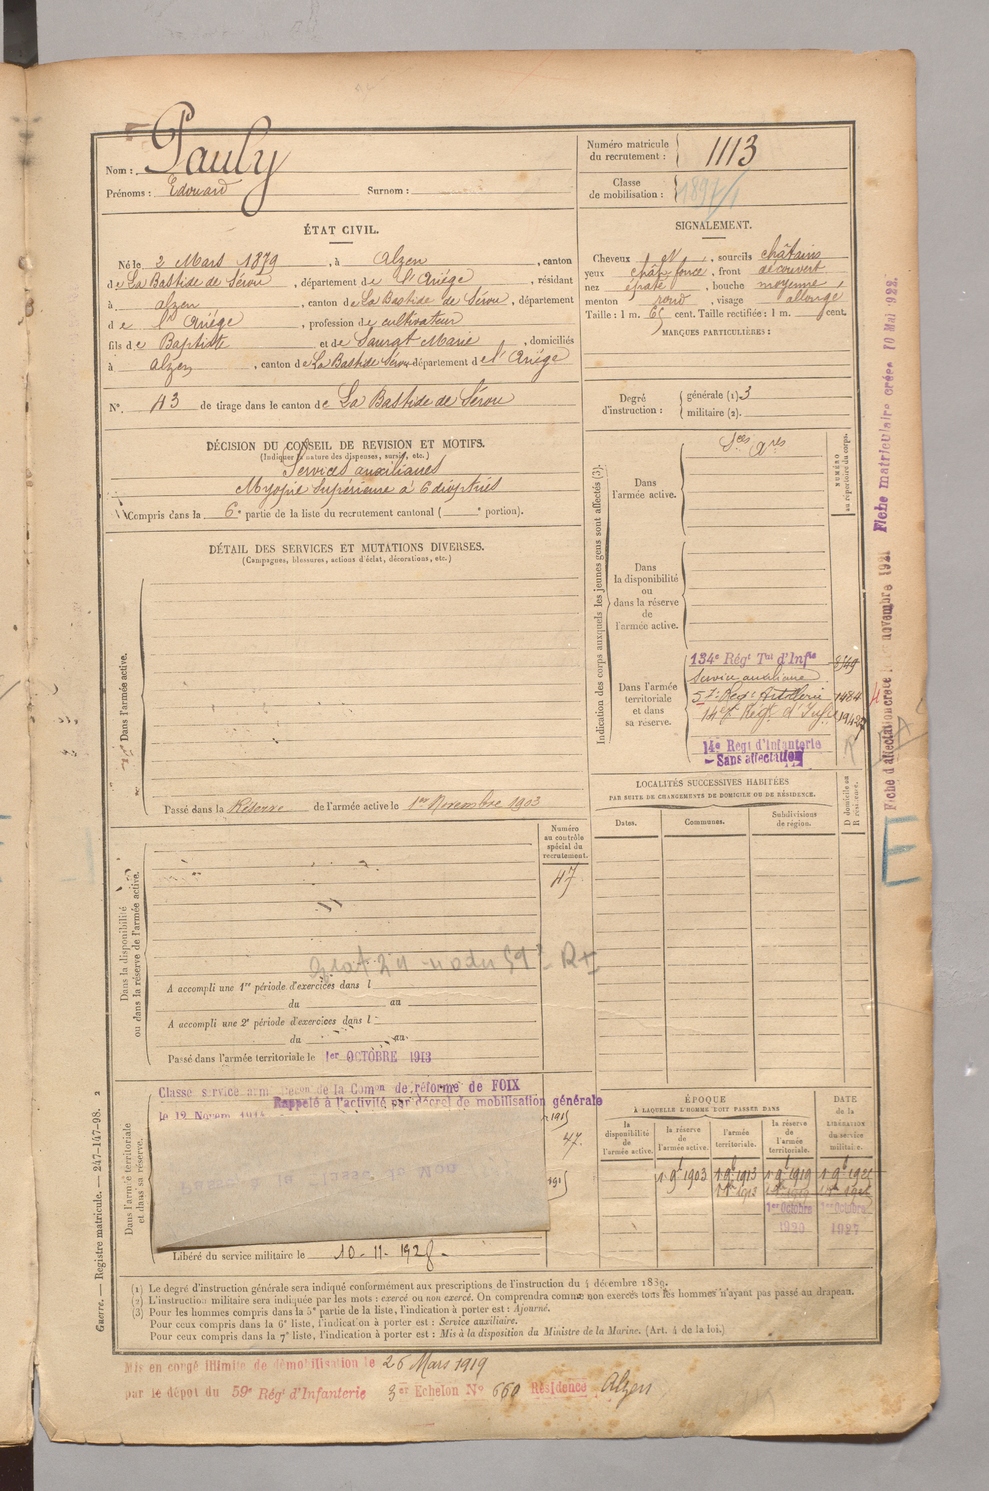 Nom : Pauly
Prénoms : Edouard Surnom :
Numéro matricule du recrutement : 1113
Classe de mobilisation :
ÉTAT CIVIL.
Né le 2 Mars 1879, à Alzen, canton
de La Bastide de Sérou, département de l'Ariège, résidant
à alzen, canton de La Bastide de Sérou, département
de l'Ariège, profession de cultivateur
fils de Baptiste et de Saurat Marie, domiciliés
à alzen, canton de La Bastide Sérou département de l'Ariège
N°. 43 de tirage dans le canton de La Bastide de Sérou
SIGNALEMENT.
Cheveux N, sourcils châtains
yeux chât. foncé, front découvert
nez épaté, bouche moyenne,
menton rond, visage allongé
Taille : 1 m. 65 cent. Taille rectifiée : 1 m. cent.
MARQUES PARTICULIÈRES :
Degré d'instruction : générale (1) 3
militaire (2).
DÉCISION DU CONSEIL DE REVISION ET MOTIFS.
(Indiquer la nature des dispenses, sursis, etc.)
Services auxiliaires
Myopie supérieure à 6 dioptries
Compris dans la 6e partie de la liste du recrutement cantonal ( e portion).
DÉTAIL DES SERVICES ET MUTATIONS DIVERSES.
(Campagnes, blessures, actions d'éclat, décorations, etc.)
Dans l'armée active.
Passé dans la Réserve de l'armée active le 1er Novembre 1903
Indication des corps auxquels les jeunes gens sont affectés (3).
NUMÉRO au répertoire du corps.
Dans l'armée active.
Sces Ares
Dans la disponibilité ou dans la réserve de l'armée active.
Dans l'armée territoriale et dans sa réserve.
134e Régt Tal d'Infie
Service auxiliaire
57e Régt Artillerie 1484
14e Régt d'Infie
14e Régt d'infanterie
Sans affectation
LOCALITÉS SUCCESSIVES HABITÉES
PAR SUITE DE CHANGEMENTS DE DOMICILE OU DE RÉSIDENCE.
Dates. Communes. Subdivisions de région. D domicile ou R résidence.
Dans la disponibilité ou dans la réserve de l'armée active.
Numéro au contrôle spécial du recrutement.
47
A accompli une 1re période d'exercices dans l
du au
A accompli une 2e période d'exercices dans l
du au
Passé dans l'armée territoriale le 1er OCTOBRE 1913
Dans l'armée territoriale et dans sa réserve.
Classé service de la Comon de réforme de FOIX
Rappelé à l'activité par décret de mobilisation générale
le 12 Novem
47.
Libéré du service militaire le 10-11-1928.
ÉPOQUE
À LAQUELLE L'HOMME DOIT PASSER DANS
la disponibilité de l'armée active. la réserve de l'armée active. l'armée territoriale. la réserve de l'armée territoriale.
DATE de la LIBÉRATION du service militaire.
1 9b 1903 1 9b 1913 1 9b 1919
1er Octobre 1920 1er Octobre 1927
(1) Le degré d'instruction générale sera indiqué conformément aux prescriptions de l'instruction du 4 décembre 1889.
(2) L'instruction militaire sera indiquée par les mots : exercé ou non exercé. On comprendra comme non exercés tous les hommes n'ayant pas passé au drapeau.
(3) Pour les hommes compris dans la 5e partie de la liste, l'indication à porter est : Ajourné.
Pour ceux compris dans la 6e liste, l'indication à porter est : Service auxiliaire.
Pour ceux compris dans la 7e liste, l'indication à porter est : Mis à la disposition du Ministre de la Marine. (Art. 4 de la loi.)
Mis en congé illimité de démobilisation le 26 Mars 1919
par le dépot du 59e Régt d'Infanterie 3er Echelon N° 660 Résidence Alzen
Guerre. — Registre matricule. — 247-147-98. 2
Fiche d'affectation créée novembre 1921 Fiche matriculaire créée 10 Mai 1922.
E